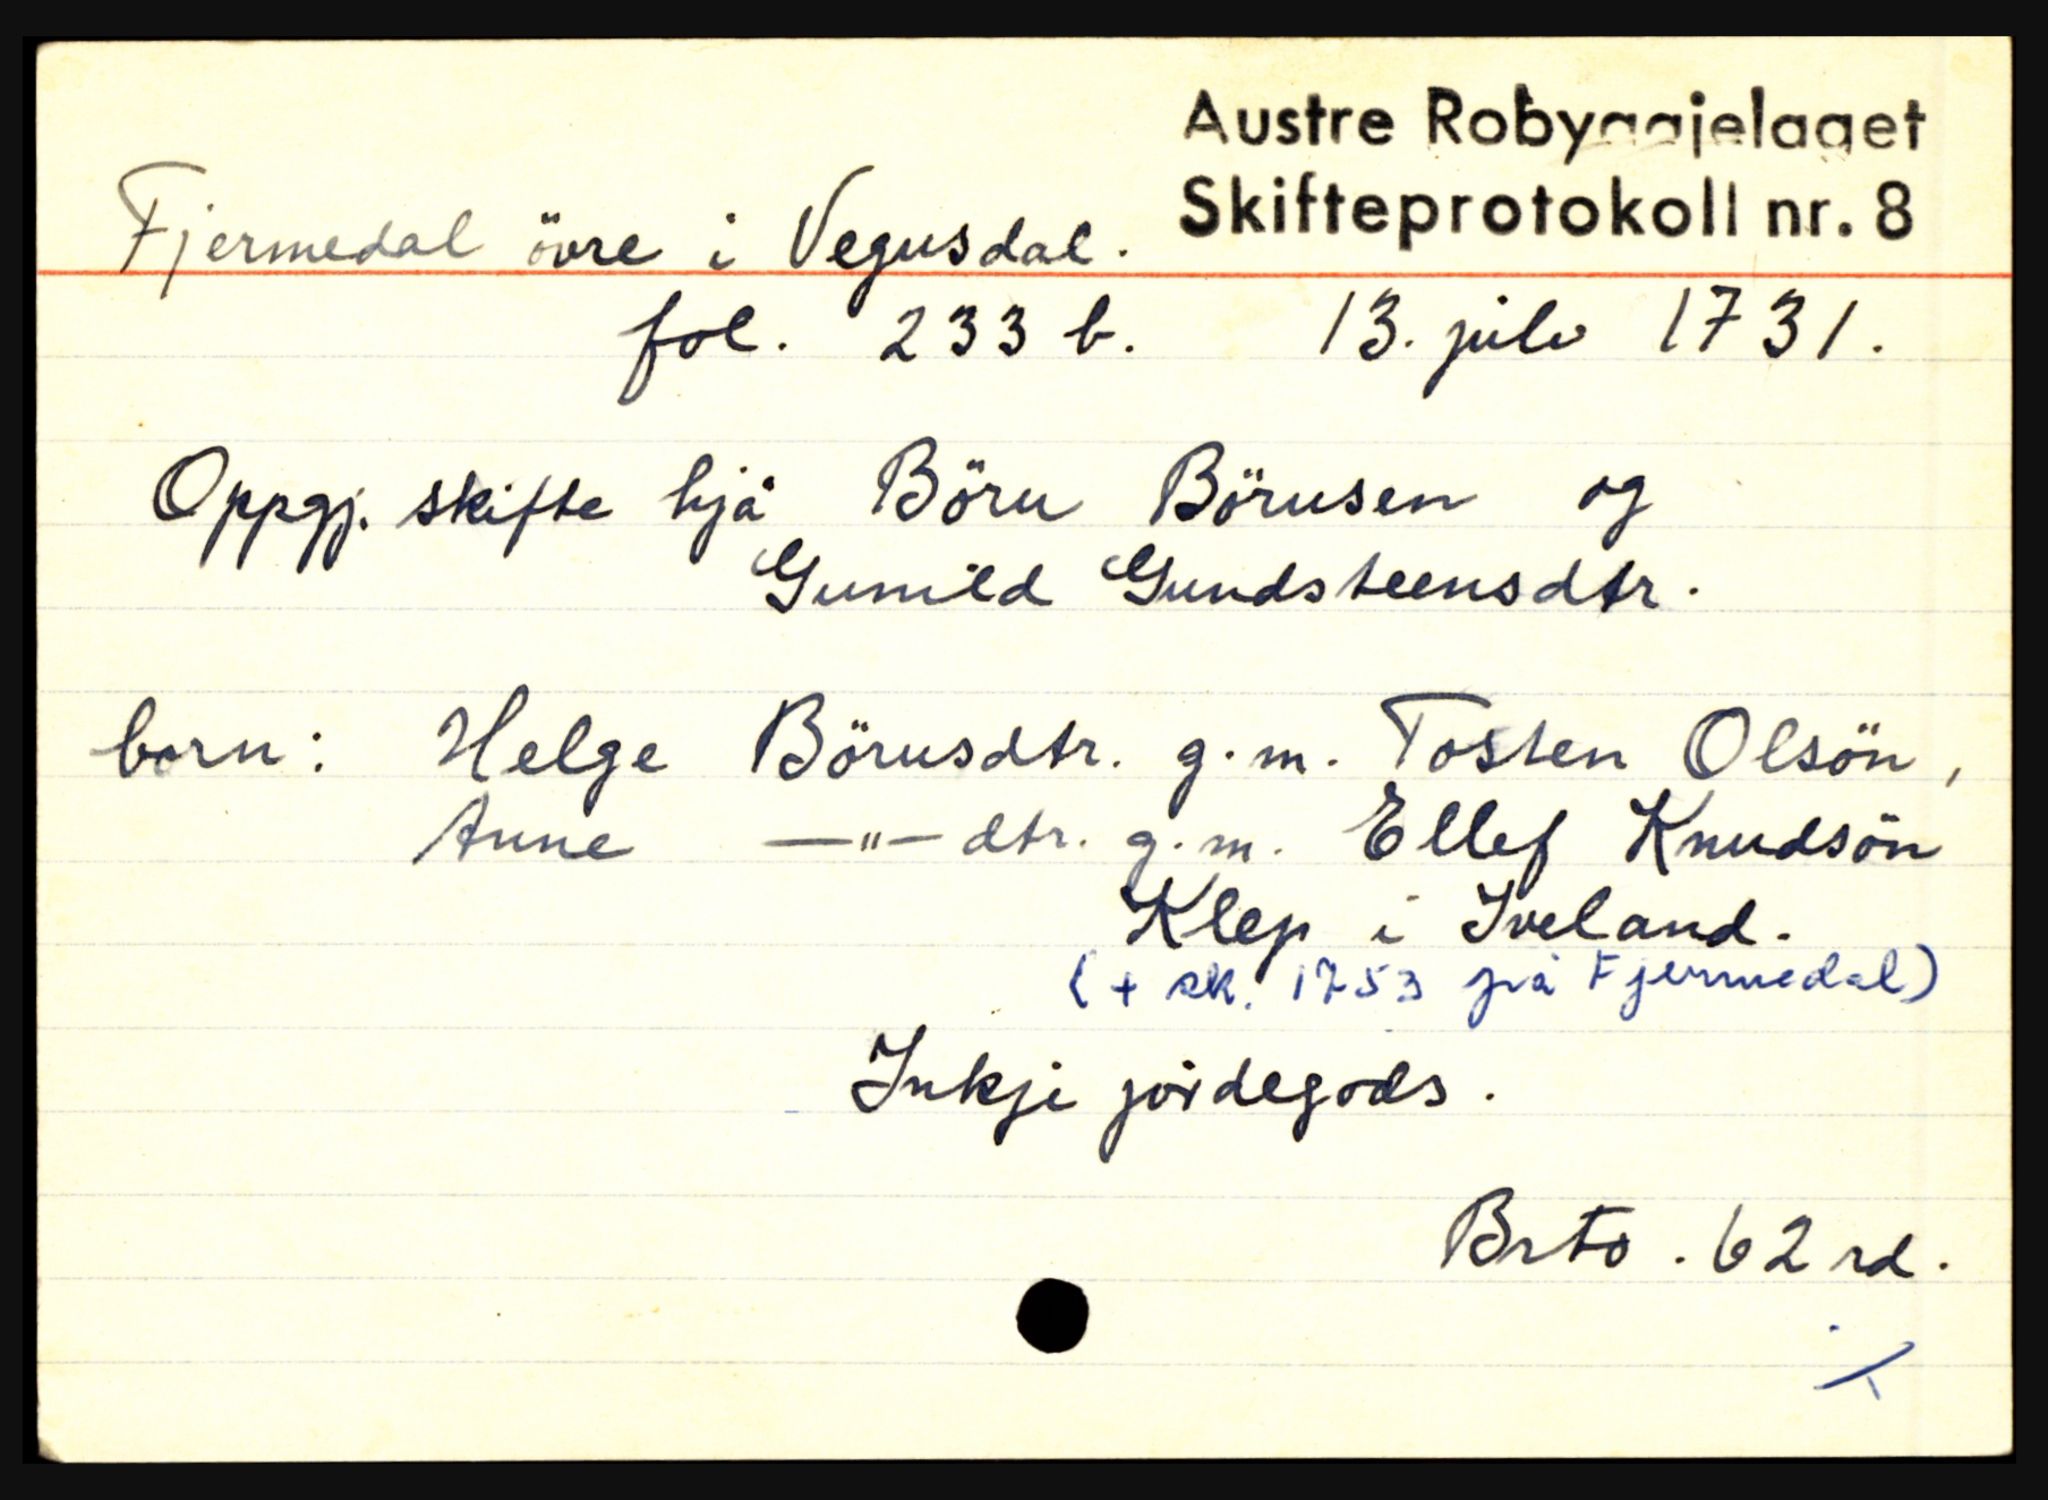 Austre Robyggjelaget
Skifteprotokoll nr. 8
Fjermedal övre i Vegusdal.
fol. 233 b. 13. juli 1731.
Oppgj. skifte hjå Böru Börusen og
Gunild Gundsteensdtr.
born: Helge Börusdtr. g.m. Tosten Olsön,
Anne —"— dtr. g.m. Ellef Knudsön
Klep i Iveland.
(+ sk. 1753 på Fjermedal)
Inkje jordegods.
Brto. 62 rd.